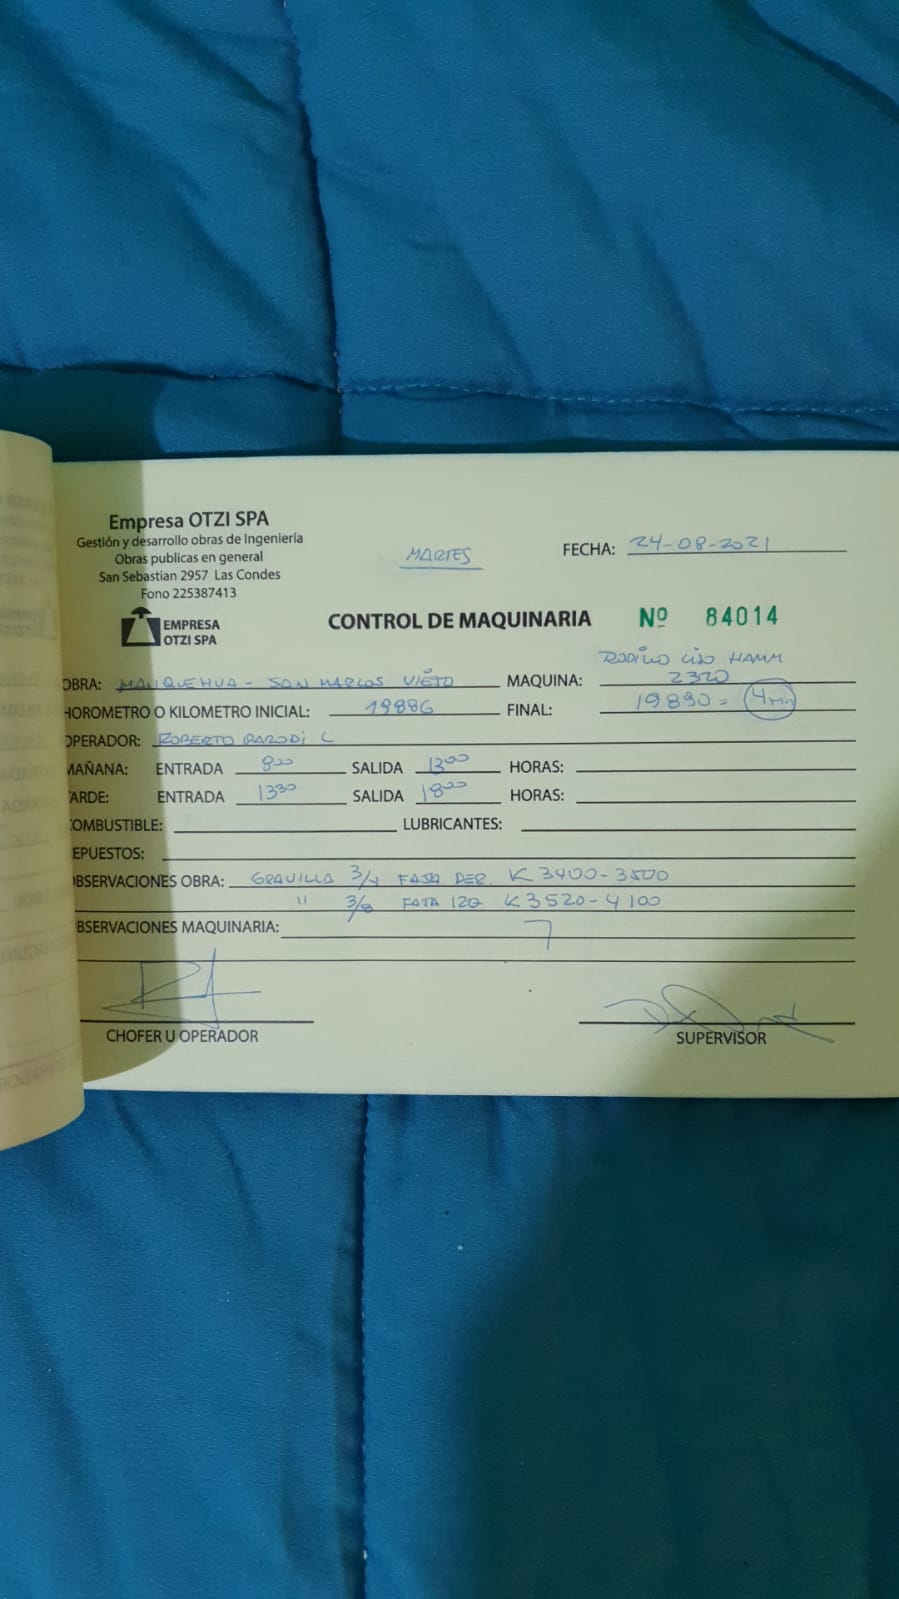 Empresa OTZI SPA
Gestión y desarrollo obras de Ingeniería
Obras publicas en general
San Sebastian 2957 Las Condes
Fono 225387413
EMPRESA
OTZI SPA
MARTES
FECHA: 24-08-2021
CONTROL DE MAQUINARIA Nº 84014
RODILLO LISO HAMM
OBRA: MANQUEHUA - SAN MARCOS VIEJO MAQUINA: 2320
HOROMETRO O KILOMETRO INICIAL: 19886 FINAL: 19890 =
OPERADOR: ROBERTO PARODI C
MAÑANA: ENTRADA 800 SALIDA 1300 HORAS:
TARDE: ENTRADA 1330 SALIDA 1800 HORAS:
COMBUSTIBLE: LUBRICANTES:
EPUESTOS:
OBSERVACIONES OBRA: GRAVILLA 3/4 FAJA DER. K 3400-3500
" 3/8 FAJA IZQ K 3520-4100
BSERVACIONES MAQUINARIA:
CHOFER U OPERADOR
SUPERVISOR